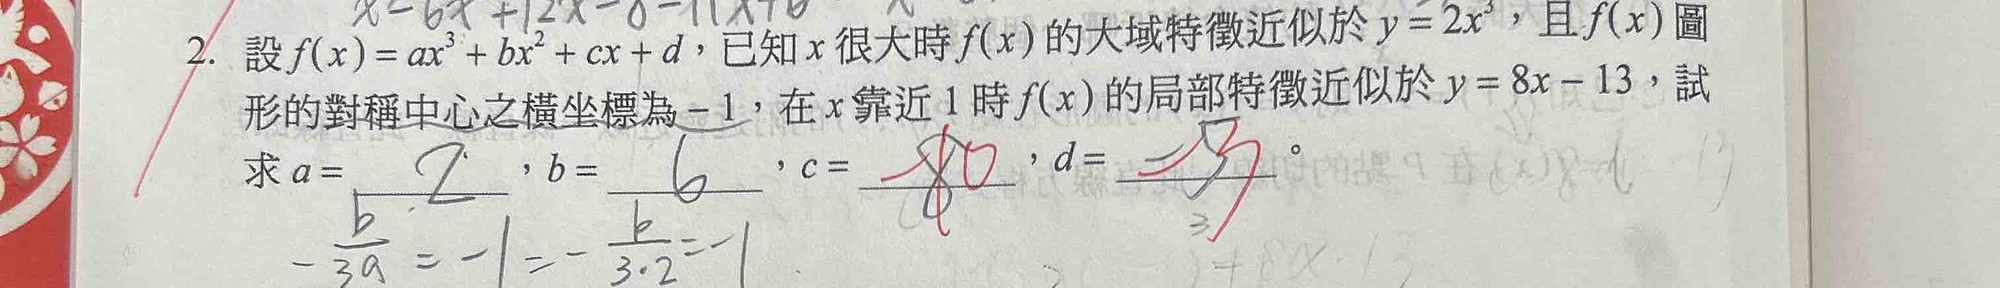 x³-6x²+12x-8-11x+6
2. 設 f(x) = ax³ + bx² + cx + d,已知 x 很大時 f(x) 的大域特徵近似於 y = 2x³,且 f(x) 圖
形的對稱中心之橫坐標為 -1,在 x 靠近 1 時 f(x) 的局部特徵近似於 y = 8x - 13,試
求 a = 2 ,b = 6 ,c = -10 ,d = -3 。
-b/3a = -1 = -b/3·2 = -1